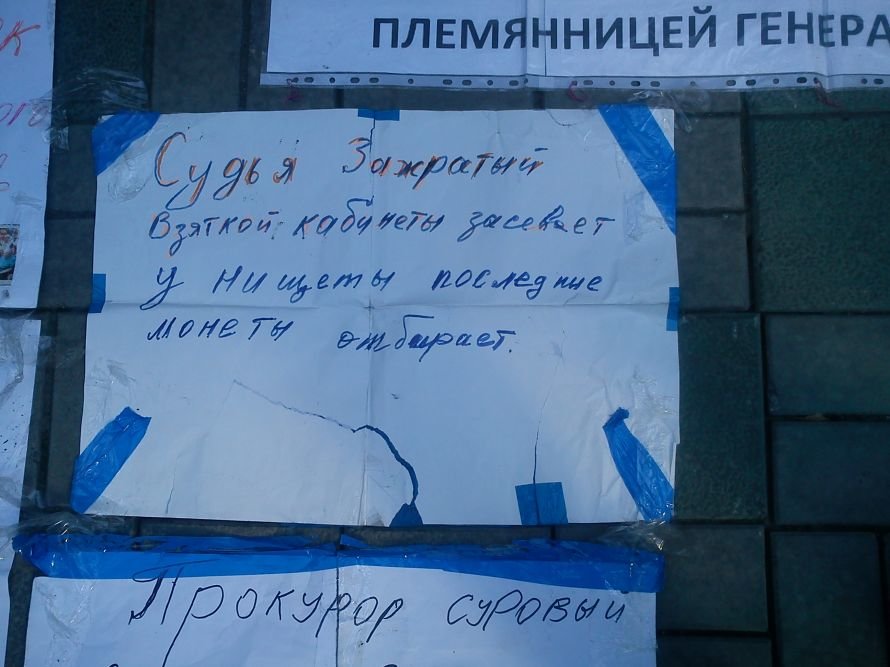 ПЛЕМЯННИЦЕЙ ГЕНЕРА
Судья Зажратый
Взяткой кабинеты засевает
у нищеты последние
монеты отбирает.
Прокурор суровый